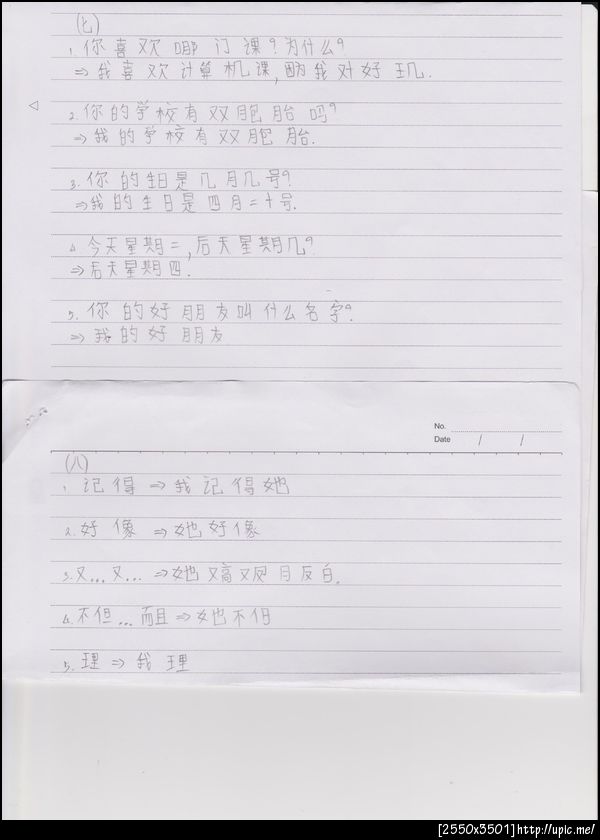 (七)
1. 你喜欢哪门课?为什么?
⇒ 我喜欢计算机课,因为我对好玩.
2. 你的学校有双胞胎吗?
⇒ 我的学校有双胞胎.
3. 你的生日是几月几号?
⇒ 我的生日是四月二十号.
4. 今天星期二,后天星期几?
⇒ 后天星期四.
5. 你的好朋友叫什么名字?
⇒ 我的好朋友
No.
Date / /
(八)
1. 记得 ⇒ 我记得她
2. 好像 ⇒ 她好像
3. 又...又... ⇒ 她又高又
4. 不但...而且 ⇒ 她不但
5. 理 ⇒ 我理
[2550x3501] http://upic.me/